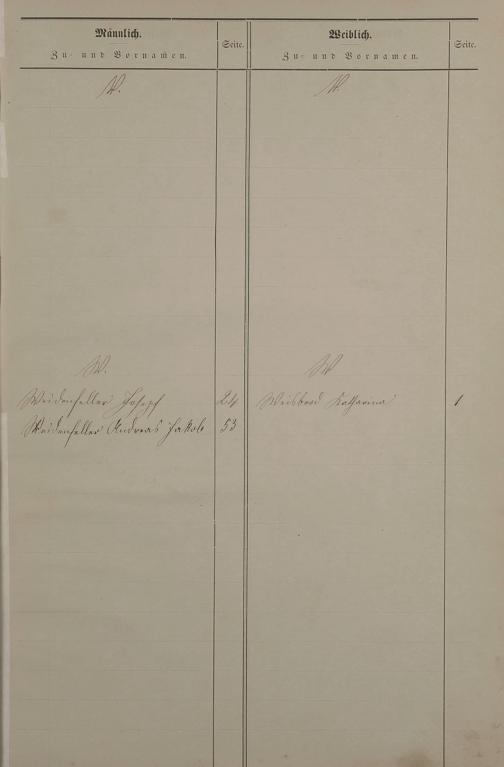 Männlich.
Zu- und Vornamen.
Seite.
Weiblich.
Zu- und Vornamen.
Seite.
W.
Weidenfeller Joseph 24
Weidenfeller Andreas Jakob 53
W
Katharina 1